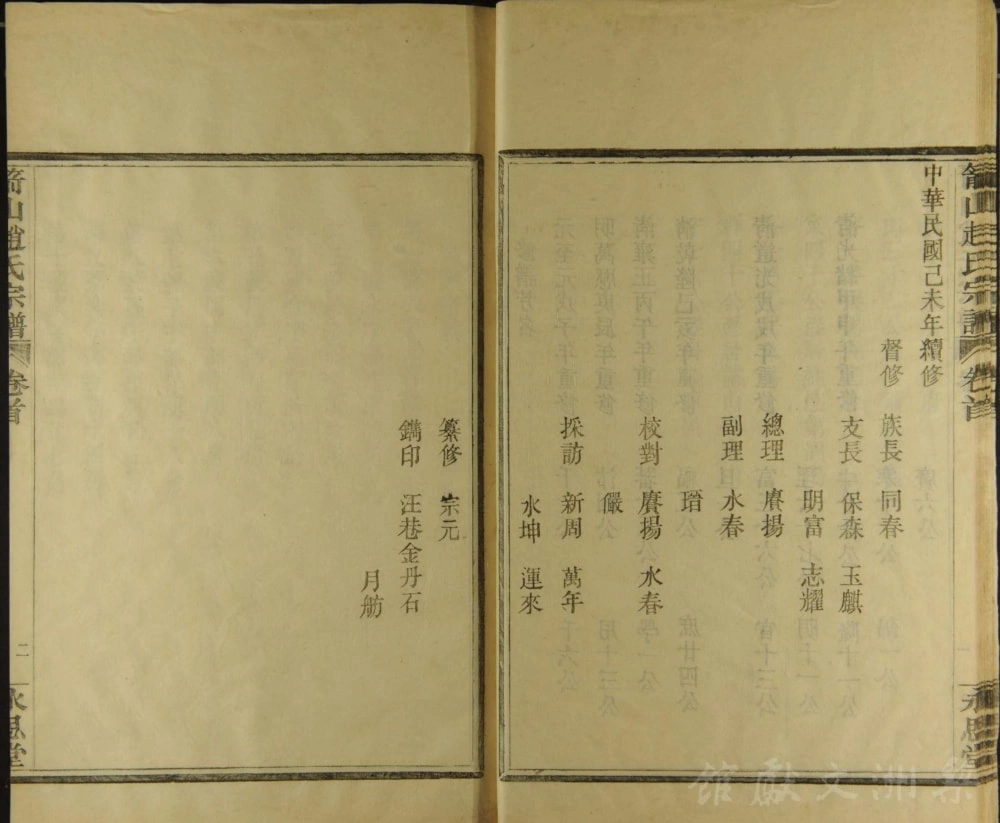 中華民國己未年續修
督修 族長 同春
支長 保森 玉麒
明富 志耀
總理 賡揚
副理 水春
瑨
校對 賡揚 水春
儼
採訪 新周 萬年
水坤 運來
纂修 宗元
鐫印 汪巷金丹石
月舫
箭山趙氏宗譜 卷首 一 永思堂
箭山趙氏宗譜 卷首 二 永思堂